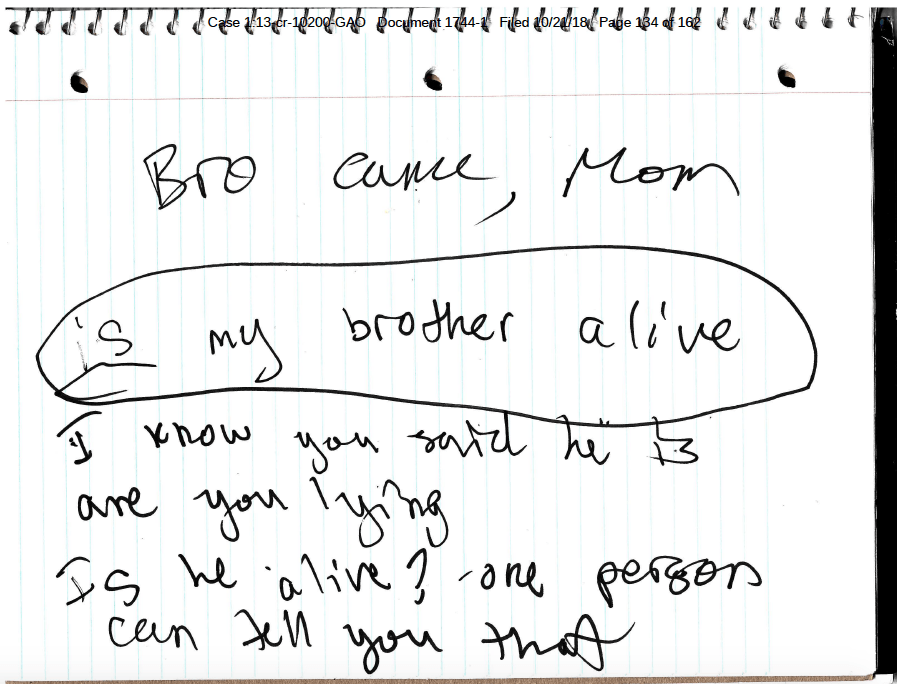 Case 1:13-cr-10200-GAO Document 1744-1 Filed 10/21/18 Page 134 of 162
Bro came, Mom
is my brother alive
I know you said he is
are you lying
Is he alive? one person
can tell you that